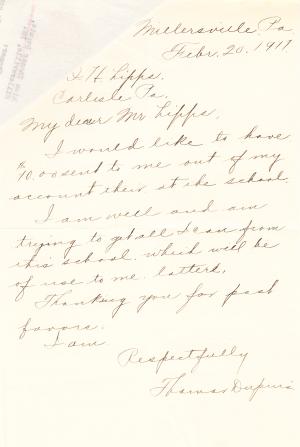 Millersville, Pa
Febr. 20, 1917
Lipps,
Carlisle Pa.
My dear Mr Lipps,
I would like to have
$10.00 sent to me out of my
account their at the school.
I am well and am
trying to get all I can from
this school. which will be
of use to me. latterd,
Thanking you for past
favors.
I am
Respectfully
Thomas Dupuis